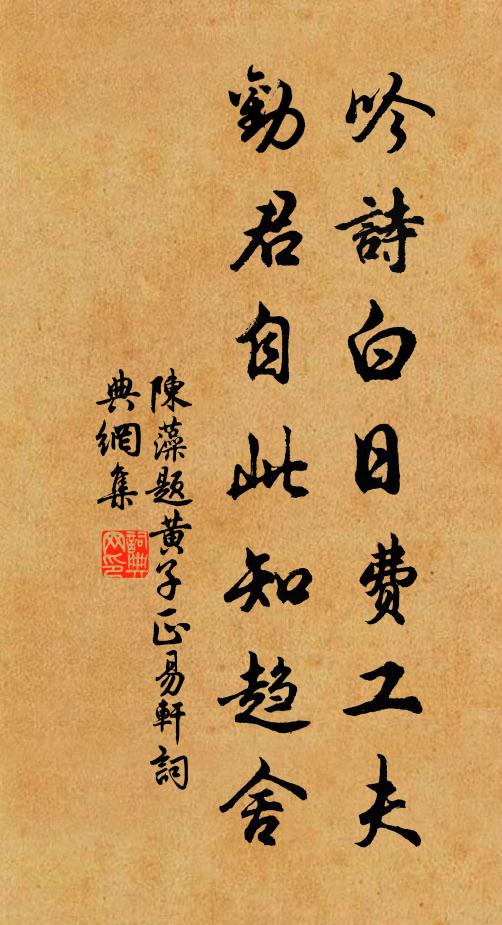 吟詩白日費工夫
勸君自此知趨舍
陳藻題黃子正易軒詞
典網集
詞典
网印